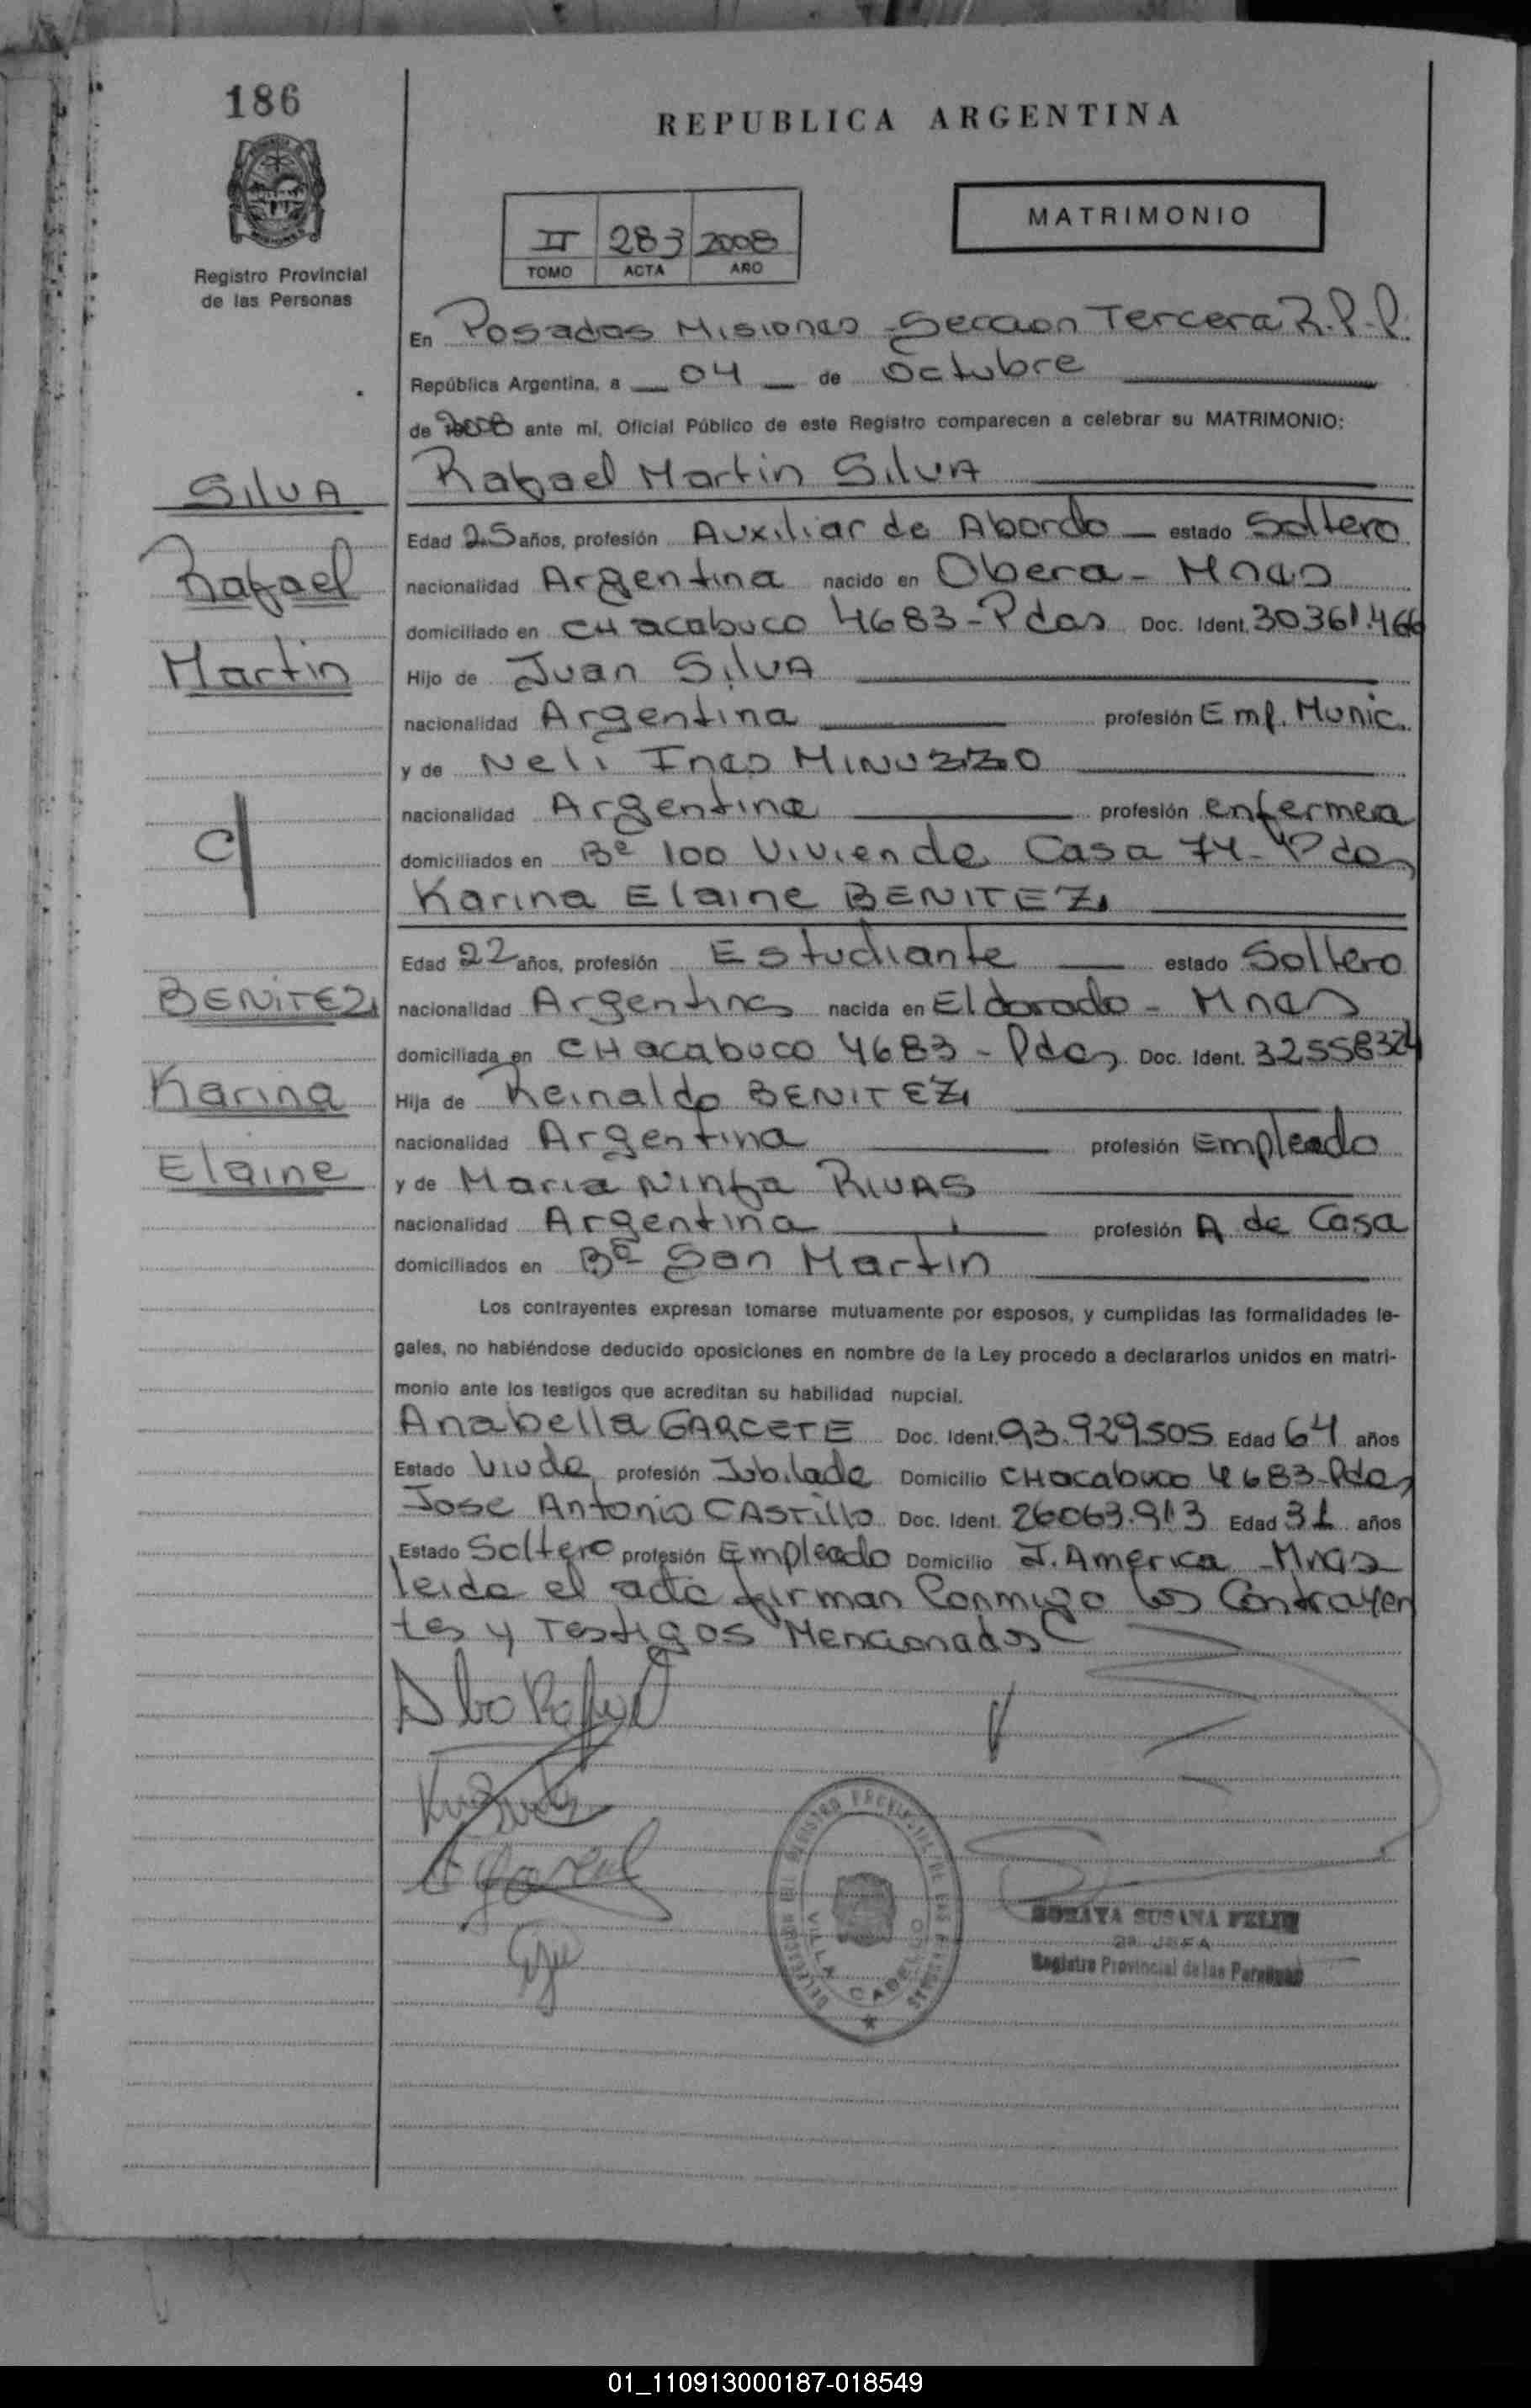 186
REPUBLICA ARGENTINA
MATRIMONIO
II 283 2008
TOMO ACTA AÑO
Registro Provincial
de las Personas
En Posadas Misiones Seccion Tercera R.P.P.
República Argentina, a 04 de Octubre
de 2008 ante mí, Oficial Público de este Registro comparecen a celebrar su MATRIMONIO:
Rafael Martin SilVA
SilVA
Edad 25 años, profesión Auxiliar de Abordo estado Soltero
Rafael
nacionalidad Argentina nacido en Obera - Mnes
domiciliado en CHacabuco 4683 - Pdas Doc. Ident. 30361.466
Martin
Hijo de Juan SilVA
nacionalidad Argentina profesión Emp. Munic.
y de Neli Ines MINUZZO
nacionalidad Argentina profesión enfermera
C/
domiciliados en Bº 100 Viviende Casa 74 - Pdas
Karina Elaine BENITEZ
Edad 22 años, profesión Estudiante estado Soltero
BENITEZ
nacionalidad Argentina nacida en Eldorado - Mnes
domiciliada en CHacabuco 4683 - Pdas Doc. Ident. 32558324
Karina
Hija de Reinaldo BENITEZ
nacionalidad Argentina profesión Empleado
Elaine
y de Maria Ninfa RIVAS
nacionalidad Argentina profesión A de Casa
domiciliados en Bº San Martin
Los contrayentes expresan tomarse mutuamente por esposos, y cumplidas las formalidades le-
gales, no habiéndose deducido oposiciones en nombre de la Ley procedo a declararlos unidos en matri-
monio ante los testigos que acreditan su habilidad nupcial.
Anabella GARCETE Doc. Ident. 93.929505 Edad 64 años
Estado Viuda profesión Jubilada Domicilio CHacabuco 4683-Pdas
Jose Antonio CASTillo Doc. Ident. 26063.913 Edad 31 años
Estado Soltero profesión Empleado Domicilio J. America - Mnes
leida el acta firman Conmigo los Contrayen
tes y Testigos Mencionados
REGISTRO PROVINCIAL DE LAS PERSONAS
VILLA CABELLO
SORAYA SUSANA
JEFA
Registro Provincial de las Personas
01_110913000187-018549